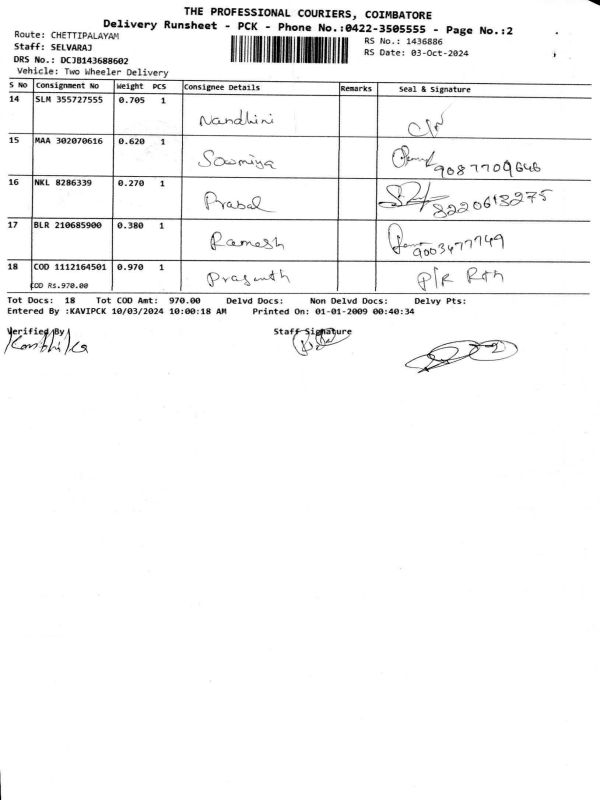 THE PROFESSIONAL COURIERS, COIMBATORE
Delivery Runsheet - PCK - Phone No.:0422-3505555 - Page No.:2
Route: CHETTIPALAYAM
RS No.: 1436886
Staff: SELVARAJ
RS Date: 03-Oct-2024
DRS No.: DCJB143688602
Vehicle: Two Wheeler Delivery
S No Consignment No Weight PCS Consignee Details Remarks Seal & Signature
14 SLM 355727555 0.705 1 Nandhini
15 MAA 302070616 0.620 1 Sowmiya 9087709646
16 NKL 8286339 0.270 1 8220613275
17 BLR 210685900 0.380 1 Ramesh 9003477749
18 COD 1112164501 0.970 1 Prasanth P/R Rtn
COD Rs.970.00
Tot Docs: 18 Tot COD Amt: 970.00 Delvd Docs: Non Delvd Docs: Delvy Pts:
Entered By :KAVIPCK 10/03/2024 10:00:18 AM Printed On: 01-01-2009 00:40:34
Verified By Staff Signature